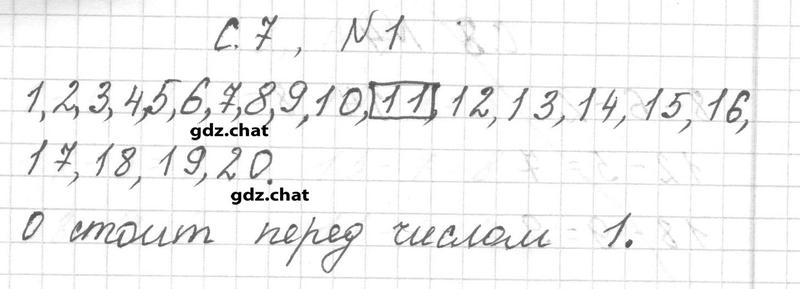 С. 7, №1
1, 2, 3, 4, 5, 6, 7, 8, 9, 10, 11, 12, 13, 14, 15, 16,
gdz.chat
17, 18, 19, 20.
gdz.chat
0 стоит перед числом 1.